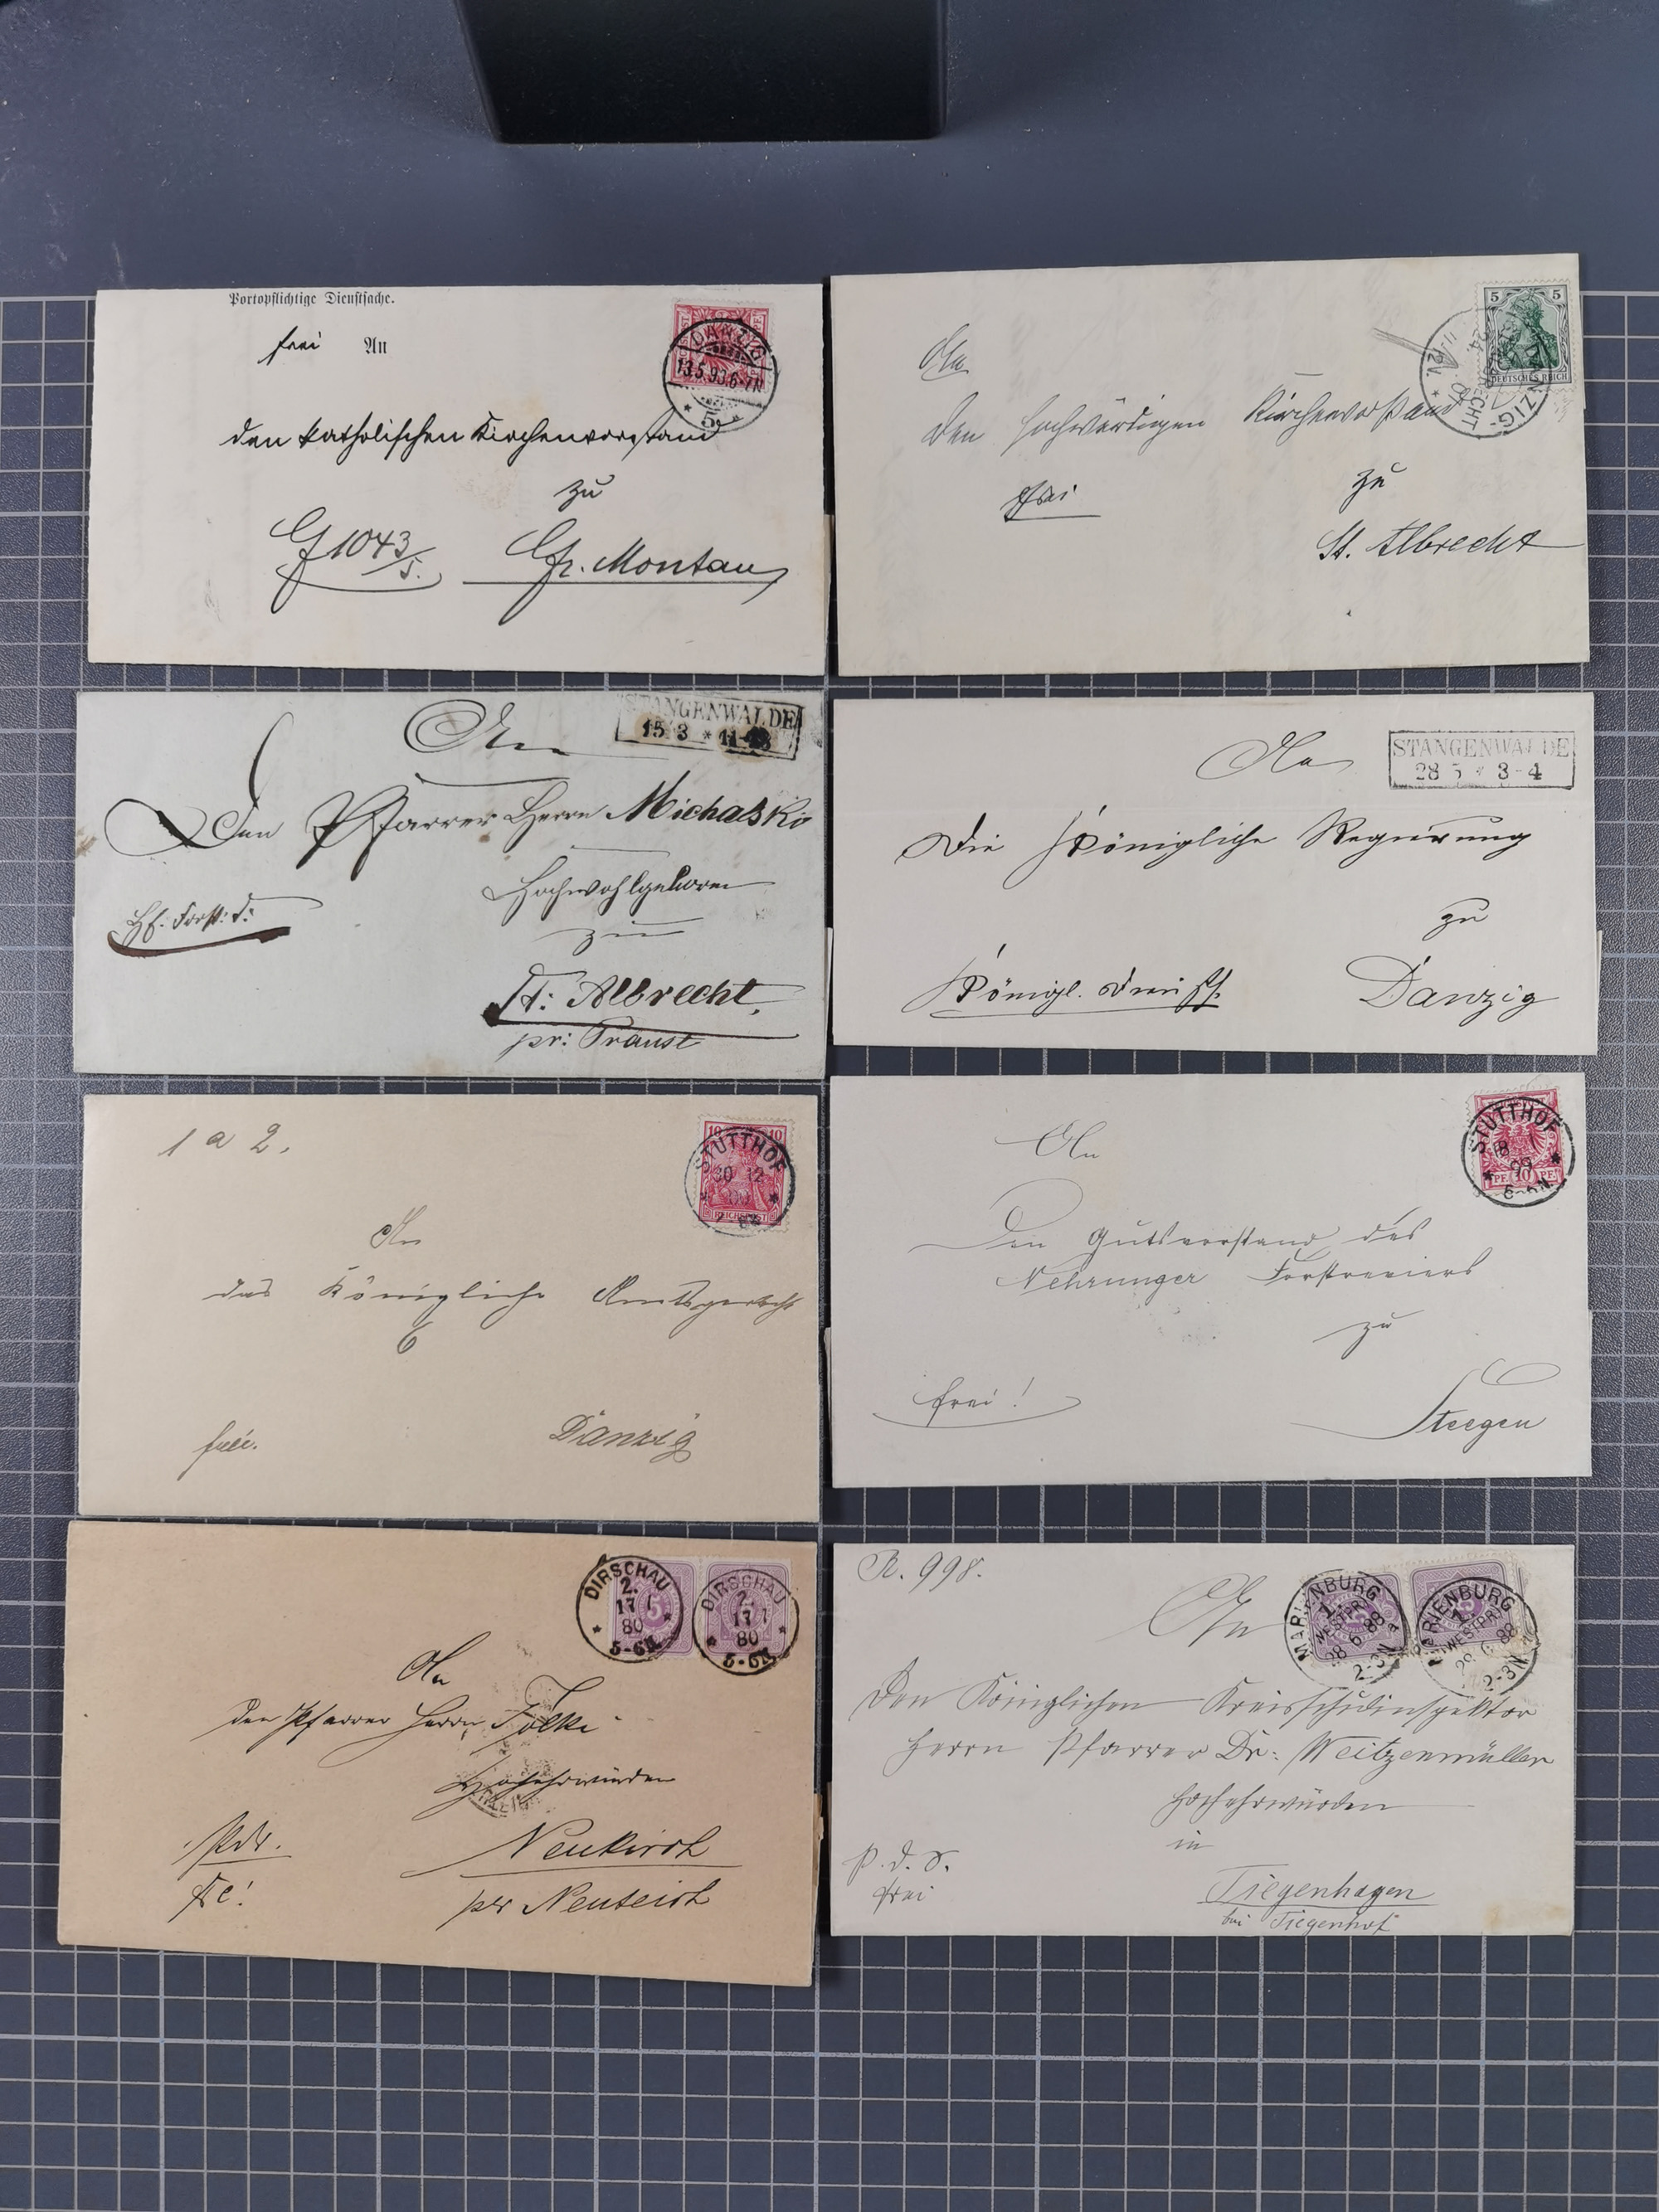 Portopflichtige Dienstsache.
frei An
DANZIG
13.5.93.6-7N
* 5. *
den katholischen Kirchenvorstand
zu
G 1043/5.
Gr. Montau
5 5
DEUTSCHES REICH
DANZIG-
11-12V
An
den hochwürdigen Kirchenvorstand
frei
zu
St. Albrecht
STANGENWALDE
15 3 *
An
Den Pfarrer Herrn Michalski
Hochwohlgeboren
zu
St: Albrecht,
pr: Praust
STANGENWALDE
28 5 * 3-4
An
Die Königliche Regierung
zu
Danzig
Königl.
1 a 2.
10 10
REICHSPOST
STUTTHOF
30 12
An
das Königliche Amtsgericht
6
frei.
Danzig
STUTTHOF
99
PF 10 PF
An
Den Gutsvorstand des
Nehrunger Forstreviers
zu
frei!
Steegen
DIRSCHAU
2.
17 1
80
5-6N
DIRSCHAU
2.
17 1
80
5-6N
An
den Pfarrer Herrn
Hochehrwürden
Neukirch
per Neuteich
R. 998.
MARIENBURG
1.
WESTPR
28 6 88
2-3N
MARIENBURG
1.
WESTPR
88
2-3N
An
Den Königlichen Kreisschulinspektor
Herrn Pfarrer Dr: Weitzenmüller
Hochehrwürden
in
p. d. S.
frei
Tiegenhagen
bei Tiegenhof